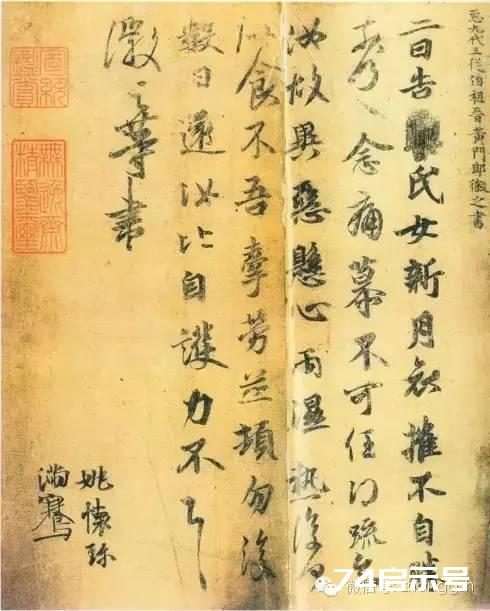 九代三從伯祖晉黃門郎徽之書
二日告氏女新月哀摧不自勝
奈何〻念痛慕不可任得疏知
汝故異惡懸心雨濕熱復何
似食不吾牽勞並頓勿復
數日還汝比自護力不具
徽之等書
姚懷珍
滿騫
宣統鑒賞
無逸齋精鑒璽
74启示号
微信号